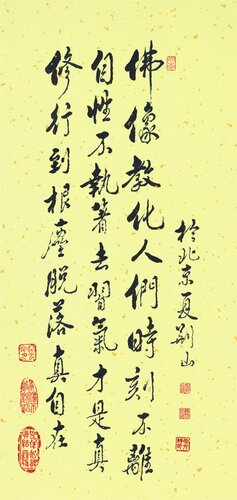 佛像教化人們時刻不離
自性不執著去習氣才是真
修行到根塵脫落真自在
於北京夏荆山